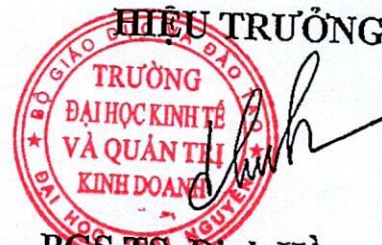 HIỆU TRƯỞNG
BỘ GIÁO DỤC VÀ ĐÀO TẠO
TRƯỜNG
ĐẠI HỌC KINH TẾ
VÀ QUẢN TRỊ
KINH DOANH
ĐẠI HỌC NGUYÊN
PGS.TS.